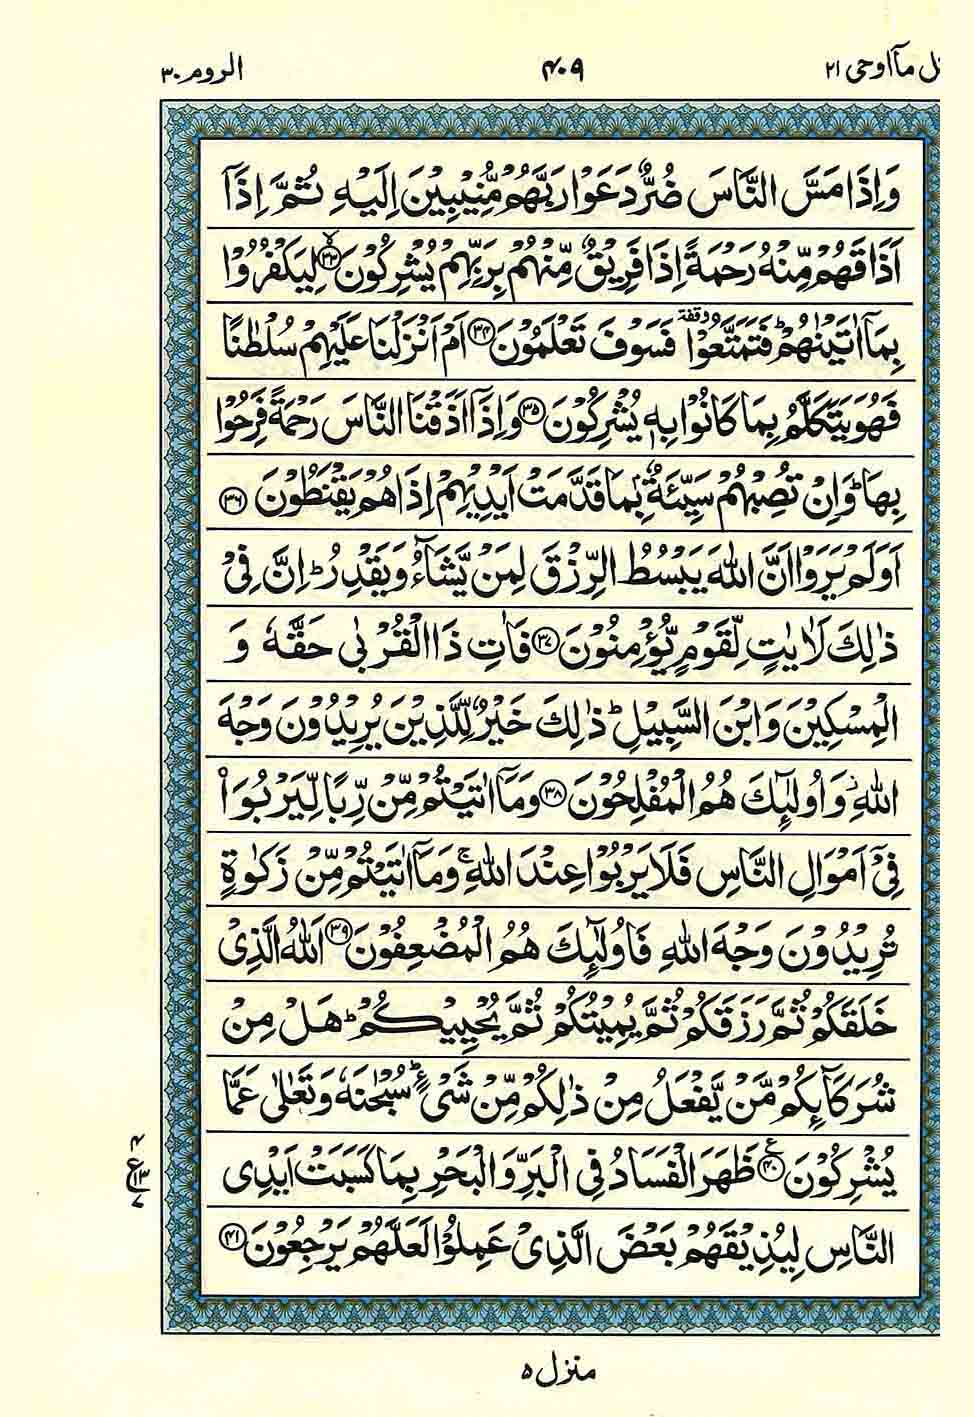 ل مآ اوحی ۲۱ ۴۰۹ الروم ۳۰
وَاِذَا مَسَّ النَّاسَ ضُرٌّ دَعَوْا رَبَّهُمْ مُّنِيْبِيْنَ اِلَيْهِ ثُمَّ اِذَآ
اَذَاقَهُمْ مِّنْهُ رَحْمَةً اِذَا فَرِيْقٌ مِّنْهُمْ بِرَبِّهِمْ يُشْرِكُوْنَ ﴿۳۳﴾ۙ لِيَكْفُرُوْا
بِمَآ اٰتَيْنٰهُمْ ؕ فَتَمَتَّعُوْا وقفة فَسَوْفَ تَعْلَمُوْنَ ﴿۳۴﴾ اَمْ اَنْزَلْنَا عَلَيْهِمْ سُلْطٰنًا
فَهُوَ يَتَكَلَّمُ بِمَا كَانُوْا بِهٖ يُشْرِكُوْنَ ﴿۳۵﴾ وَاِذَآ اَذَقْنَا النَّاسَ رَحْمَةً فَرِحُوْا
بِهَا ؕ وَاِنْ تُصِبْهُمْ سَيِّئَةٌۢ بِمَا قَدَّمَتْ اَيْدِيْهِمْ اِذَا هُمْ يَقْنَطُوْنَ ﴿۳۶﴾
اَوَلَمْ يَرَوْا اَنَّ اللّٰهَ يَبْسُطُ الرِّزْقَ لِمَنْ يَّشَآءُ وَيَقْدِرُ ؕ اِنَّ فِيْ
ذٰلِكَ لَاٰيٰتٍ لِّقَوْمٍ يُّؤْمِنُوْنَ ﴿۳۷﴾ فَاٰتِ ذَا الْقُرْبٰى حَقَّهٗ وَ
الْمِسْكِيْنَ وَابْنَ السَّبِيْلِ ؕ ذٰلِكَ خَيْرٌ لِّلَّذِيْنَ يُرِيْدُوْنَ وَجْهَ
اللّٰهِ ؗ وَاُولٰٓئِكَ هُمُ الْمُفْلِحُوْنَ ﴿۳۸﴾ وَمَآ اٰتَيْتُمْ مِّنْ رِّبًا لِّيَرْبُوَا۟
فِيْٓ اَمْوَالِ النَّاسِ فَلَا يَرْبُوْا عِنْدَ اللّٰهِ ۚ وَمَآ اٰتَيْتُمْ مِّنْ زَكٰوةٍ
تُرِيْدُوْنَ وَجْهَ اللّٰهِ فَاُولٰٓئِكَ هُمُ الْمُضْعِفُوْنَ ﴿۳۹﴾ اَللّٰهُ الَّذِيْ
خَلَقَكُمْ ثُمَّ رَزَقَكُمْ ثُمَّ يُمِيْتُكُمْ ثُمَّ يُحْيِيْكُمْ ؕ هَلْ مِنْ
شُرَكَآئِكُمْ مَّنْ يَّفْعَلُ مِنْ ذٰلِكُمْ مِّنْ شَيْءٍ ؕ سُبْحٰنَهٗ وَتَعٰلٰى عَمَّا
يُشْرِكُوْنَ ﴿۴۰﴾ ع ظَهَرَ الْفَسَادُ فِي الْبَرِّ وَالْبَحْرِ بِمَا كَسَبَتْ اَيْدِي
۴ ع ۱۳ ۷
النَّاسِ لِيُذِيْقَهُمْ بَعْضَ الَّذِيْ عَمِلُوْا لَعَلَّهُمْ يَرْجِعُوْنَ ﴿۴۱﴾
منزل ۵